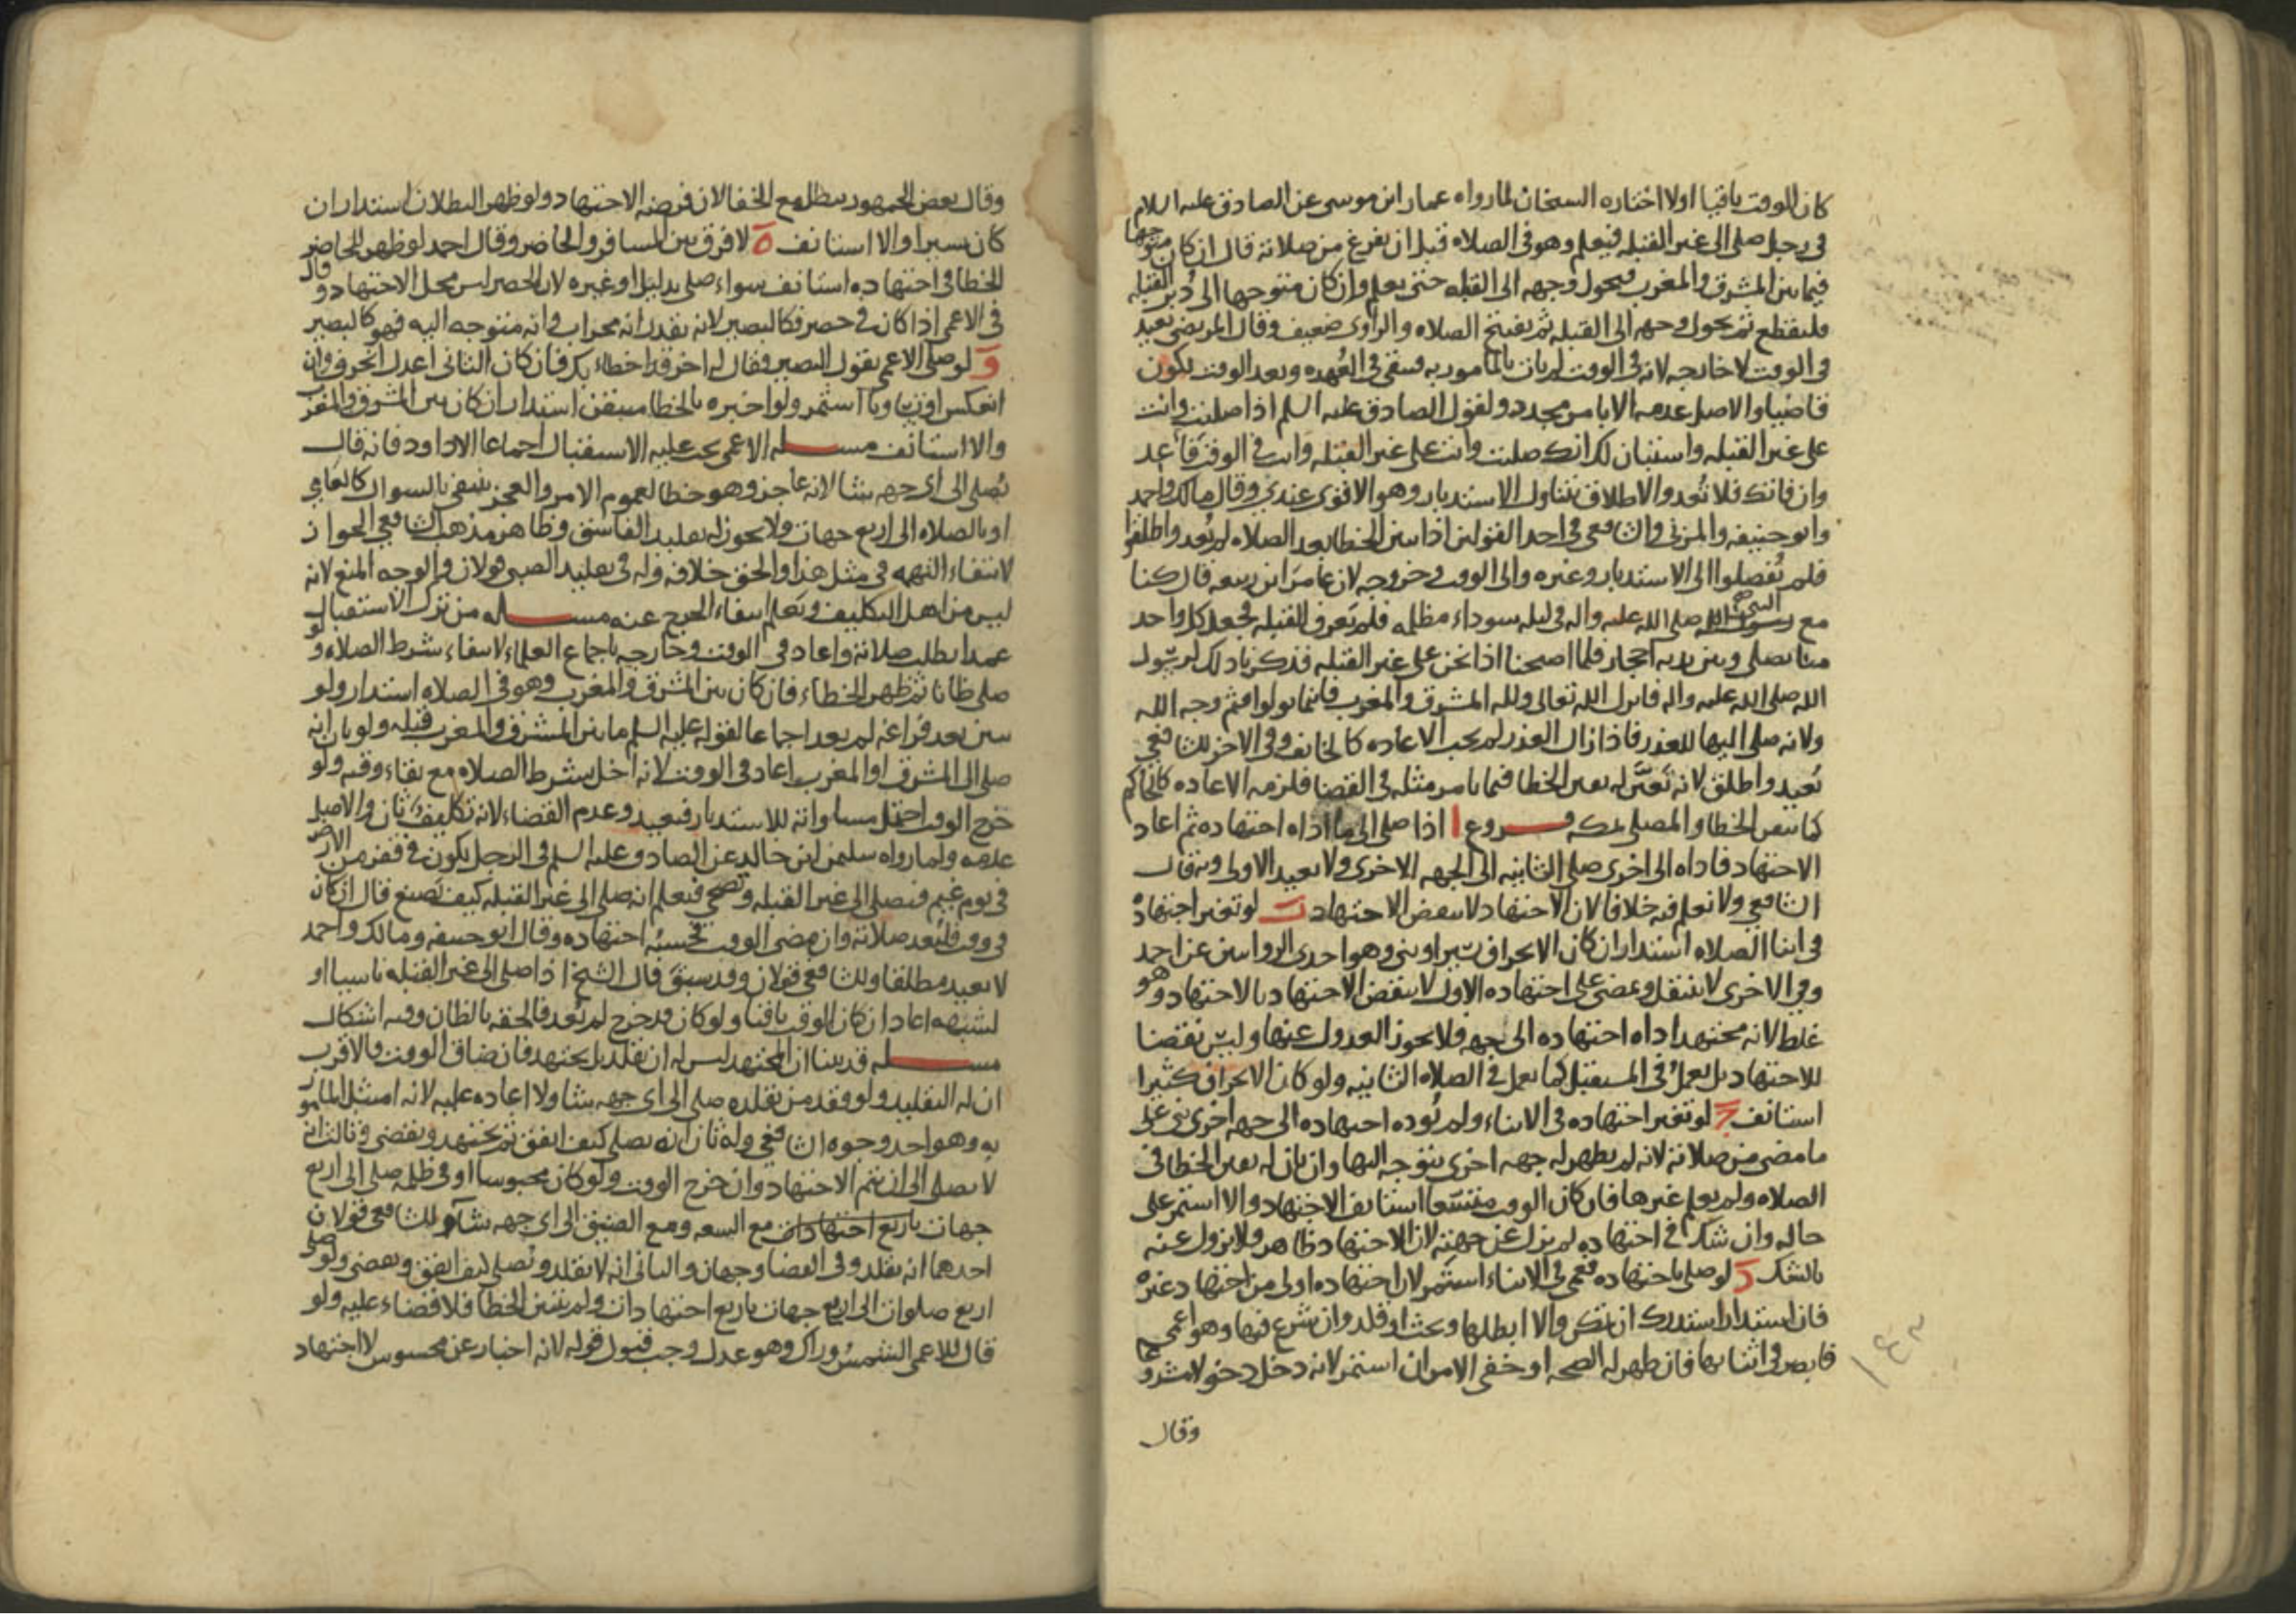 كان الوقت باقيا اولا اختاره الشيخان لما رواه عمار ابن موسى عن الصادق عليه السلام
في رجل صلى الى غير القبله فيعلم وهو في الصلاه قبل ان يفرغ من صلاته قال ان كان متوجها
فيما بين المشرق والمغرب فيحول وجهه الى القبله حتى يعلم وان كان متوجها الى دبر القبله
فليقطع ثم يحول وجهه الى القبله ثم يفتتح الصلاه والراوي ضعيف وقال المرتضى يعيد
في الوقت لا خارجه لانه في الوقت لم يات بالمامور به فيبقى في العهده وبعد الوقت يكون
قاضيا والاصل عدمه الا بامر مجدد ولقول الصادق عليه السلم اذا صليت وانت
على غير القبله واستبان لك انك صليت وانت على غير القبله وانت في الوقت فأعد
وان فاتك فلا تعد والاطلاق يتناول الاستدبار وهو الاقوى عندي وقال مالك واحمد
وابو حنيفه والمزني والشافعي في احد القولين اذا تبين الخطا بعد الصلاه لم يعد واطلقوا
فلم يفصلوا الى الاستدبار وغيره والى الوقت وخروجه لان عامر ابن ربيعه قال كنا
مع النبي صلى الله عليه واله في ليله سوداء مظلمه فلم نعرف القبله فجعل كل واحد
منا يصلي وبين يديه احجار فلما اصبحنا اذا نحن على غير القبله فذكرنا ذلك لرسول
الله صلى الله عليه واله فانزل الله تعالى ولله المشرق والمغرب فاينما تولوا فثم وجه الله
ولانه صلى اليها للعذر فاذا زال العذر لم يجب الاعاده كالخائف وفي الاخر للشافعي
يعيد واطلق لانه تعيّن له يقين الخطا فيما يامن مثله في القضا فلزمه الاعاده كالحاكم
كما تيقن الخطا والمصلي بمكه فروع ا اذا صلى الى ما اداه اجتهاده ثم اعاد
الاجتهاد فاداه الى اخرى صلى الثانيه الى الجهه الاخرى ولا يعيد الاولى وبه قال
الشافعي ولا نعلم فيه خلافا لان الاجتهاد لا ينقض الاجتهاد ب لو تغير اجتهاده
في اثنا الصلاه استدار ان كان الانحراف يسيرا وبنى وهو احدى الروايتين عن احمد
وفي الاخرى لا ينتقل ويمضي على اجتهاده الاول لئلا ينقض الاجتهاد بالاجتهاد وهو
غلط لانه مجتهد اداه اجتهاده الى جهه فلا يجوز العدول عنها وليس نقضا
للاجتهاد بل يعمل في المستقبل كما يعمل في الصلاه الثانيه ولو كان الانحراف كثيرا
استانف ج لو تغير اجتهاده في الاثناء ولم يؤده اجتهاده الى جهه اخرى بنى على
ما مضى من صلاته لانه لم يظهر له جهه اخرى يتوجه اليها وان بان له يقين الخطا في
الصلاه ولم يعلم غيرها فان كان الوقت متسعا استانف الاجتهاد والا استمر على
حاله وان شك في اجتهاده لم يزل عن جهته لان الاجتهاد ظاهر ولا يزول عنه
بالشك د لو صلى باجتهاده فعمي في الاثناء استمر لان اجتهاده اولى من اجتهاد غيره
فان استدار استدرك ان تمكن والا ابطلها وبحث او قلد وان شرع فيها وهو اعمى
فابصر في اثنايها فان ظهر له الصحه او خفي الامر ان استمر لانه دخل دخولا مشروعا
وقال
١٤٢
وقال بعض الجمهور يبطل مع الخفا لان فرضه الاجتهاد ولو ظهر البطلان استدار ان
كان يسيرا والا استانف ه لا فرق بين المسافر والحاضر وقال احمد لو ظهر للحاضر
الخطا في اجتهاده استانف سواء صلى بدليل او غيره لان الحضر ليس محل الاجتهاد وقال
في الاعمى اذا كان في حضر فكالبصير لانه يقدر انه محراب وانه متوجه اليه فهو كالبصير
و لو صلى الاعمى بقول البصير فقال له اخر قد اخطاء بك فان كان الثاني اعدل انحرف وان
انعكس او تساويا استمر ولو اخبره بالخطا متيقن استدار ان كان بين المشرق والمغرب
والا استانف مسله الاعمى يجب عليه الاستقبال اجماعا الا داود فانه قال
يصلي الى اي جهه شا لانه عاجز وهو خطا لعموم الامر والعجز ينتفي بالسوال كالعامي
او بالصلاه الى اربع جهات ولا يجوز له تقليد الفاسق وظاهر مذهب الشافعي الجواز
لانتفاء التهمه في مثل هذا والحق خلافه وله في تقليد الصبي قولان والوجه المنع لانه
ليس من اهل التكليف ويعلم انتفاء الحرج عنه مسله من ترك الاستقبال
عمدا بطلت صلاته واعاد في الوقت وخارجه باجماع العلماء لانتفاء شرط الصلاه ولو
صلى ظانا ثم ظهر الخطاء فان كان بين المشرق والمغرب وهو في الصلاه استدار ولو
تبين بعد فراغه لم يعد اجماعا لقوله عليه السلم ما بين المشرق والمغرب قبله ولو بان انه
صلى الى المشرق او المغرب اعاد في الوقت لانه اخل بشرط الصلاه مع بقاء وقته ولو
خرج الوقت احتمل مساواته للاستدبار فيعيد وعدم القضاء لانه تكليف ثان والاصل
عدمه ولما رواه سليمن ابن خالد عن الصادق عليه السلم في الرجل يكون في قفر من الارض
في يوم غيم فيصلي الى غير القبله وتصحى فيعلم انه صلى الى غير القبله كيف يصنع قال ان كان
في وقت فليعد صلاته وان مضى الوقت فحسبه اجتهاده وقال ابو حنيفه ومالك واحمد
لا يعيد مطلقا وللشافعي قولان وقد سبق قال الشيخ اذا صلى الى غير القبله ناسيا او
لشبهه اعاد ان كان الوقت باقيا ولو كان قد خرج لم يعد فالحقه بالظان وفيه اشكال
مسله قد بينا ان المجتهد ليس له ان يقلد بل يجتهد فان ضاق الوقت فالاقرب
ان له التقليد ولو فقد من يقلده صلى الى اي جهه شا ولا اعاده عليه لانه امتثل المامور
به وهو احد وجوه الشافعي وله ثان انه يصلي كيف اتفق ثم يجتهد ويقضي وثالث انه
لا يصلي الى ان يتم الاجتهاد وان خرج الوقت ولو كان محبوسا او في ظلمه صلى الى اربع
جهات باربع اجتهادات مع السعه ومع الضيق الى اي جهه شا وللشافعي قولان
احدهما انه يقلد وفي القضا وجهان والثاني انه لا يقلد ويصلي كيف اتفق ويقضي ولو صلى
اربع صلوات الى اربع جهات باربع اجتهادات ولم يتبين الخطا فلا قضاء عليه ولو
قال للاعمى الشمس وراك وهو عدل وجب قبول قوله لانه اخبار عن محسوس لا اجتهاد